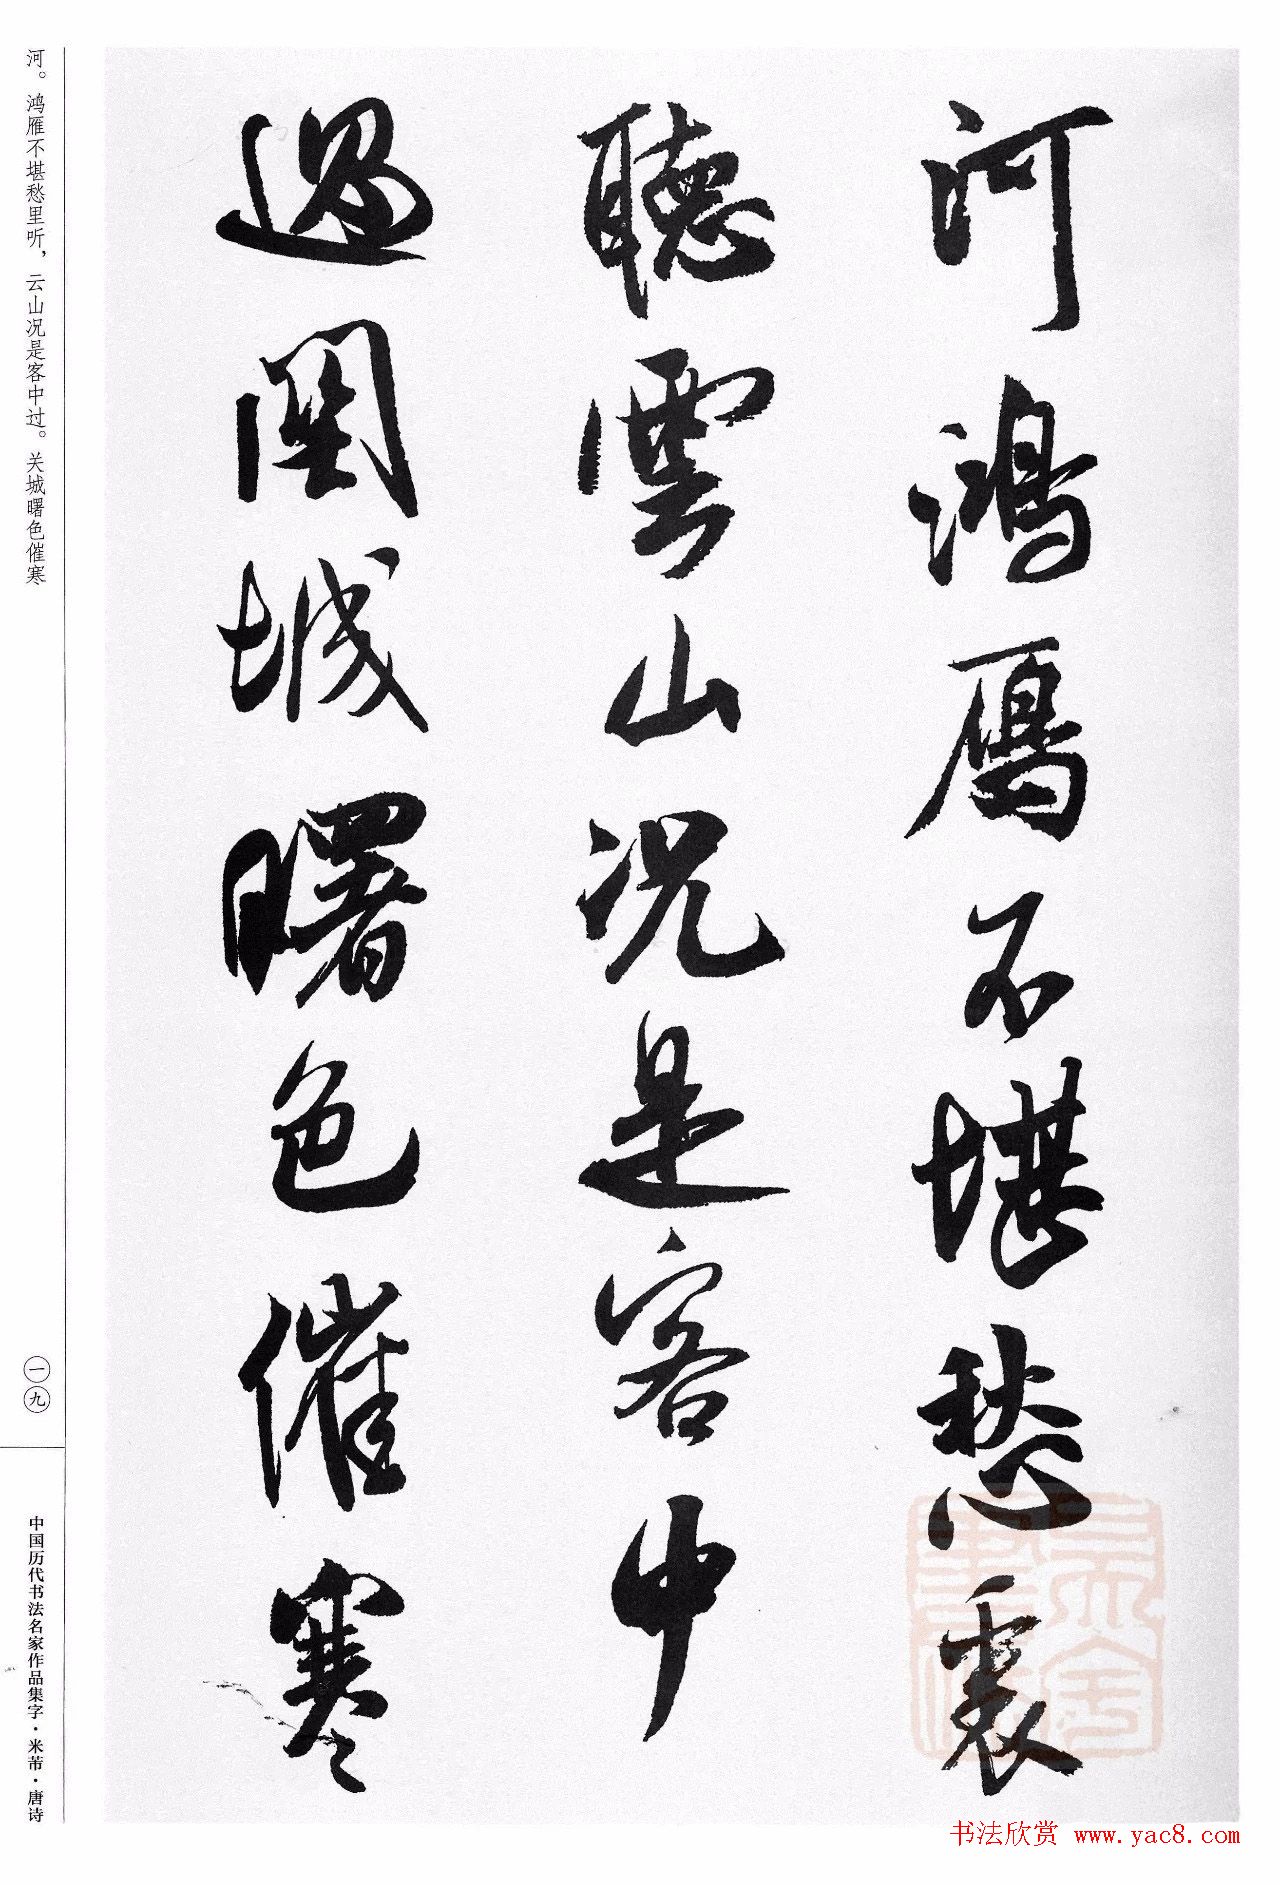 河鴻鴈不堪愁裏
聽雲山況是客中
過關城曙色催寒
河。鸿雁不堪愁里听，云山况是客中过。关城曙色催寒
一九
中国历代书法名家作品集字·米芾·唐诗
书法欣赏 www.yac8.com